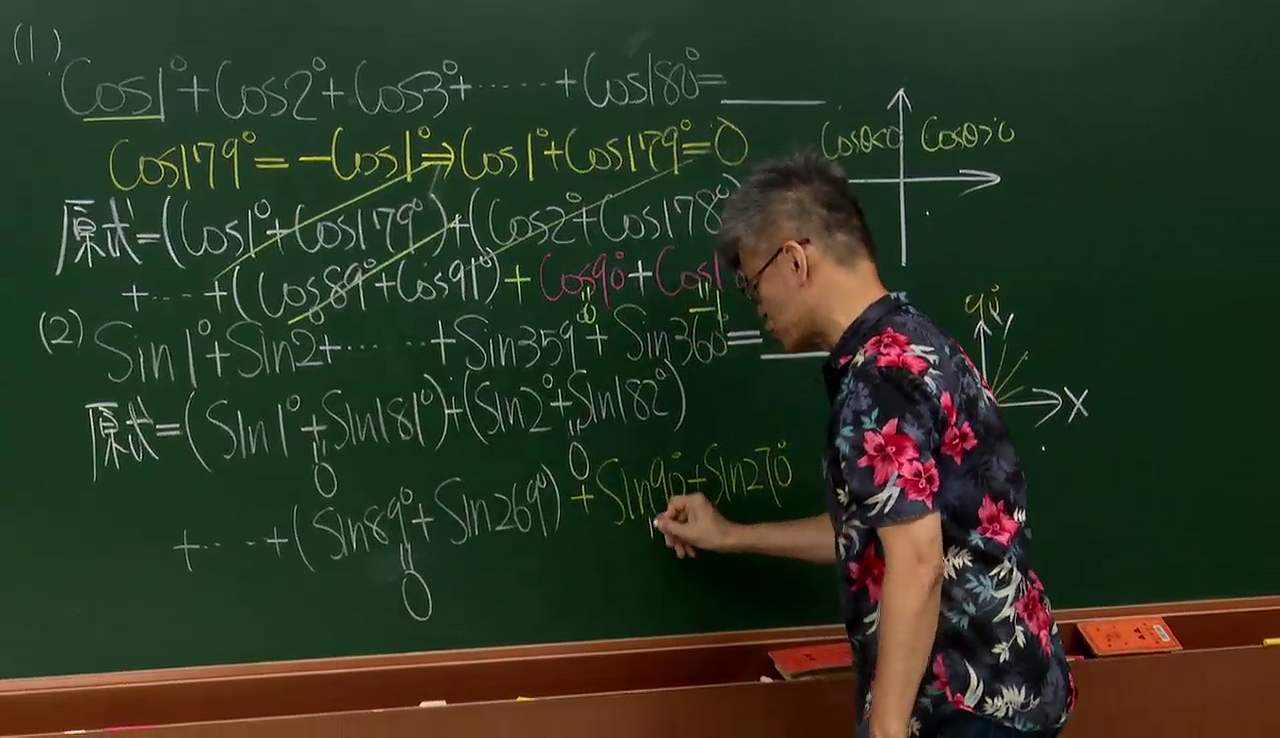 (1) Cos1°+Cos2°+Cos3°+······+Cos180°=
Cos179°=-Cos1°⇒Cos1°+Cos179°=0
Cosθ<0 Cosθ>0
原式=(Cos1°+Cos179°)+(Cos2°+Cos178°
+····+(Cos89°+Cos91°)+Cos90°+Cos1
0 -1
(2) Sin1°+Sin2°+······+Sin359°+Sin360°=
90°
Y
X
原式=(Sin1°+Sin181°)+(Sin2°+Sin182°)
0 0
+····+(Sin89°+Sin269°)+Sin90°+Sin270°
0